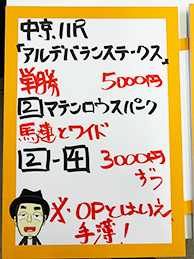 中京11R
「アルデバランステークス」
単勝 5000円
2 マテンロウスパーク
馬連とワイド
2-4 3000円
ずつ
※OPとはいえ
手薄!